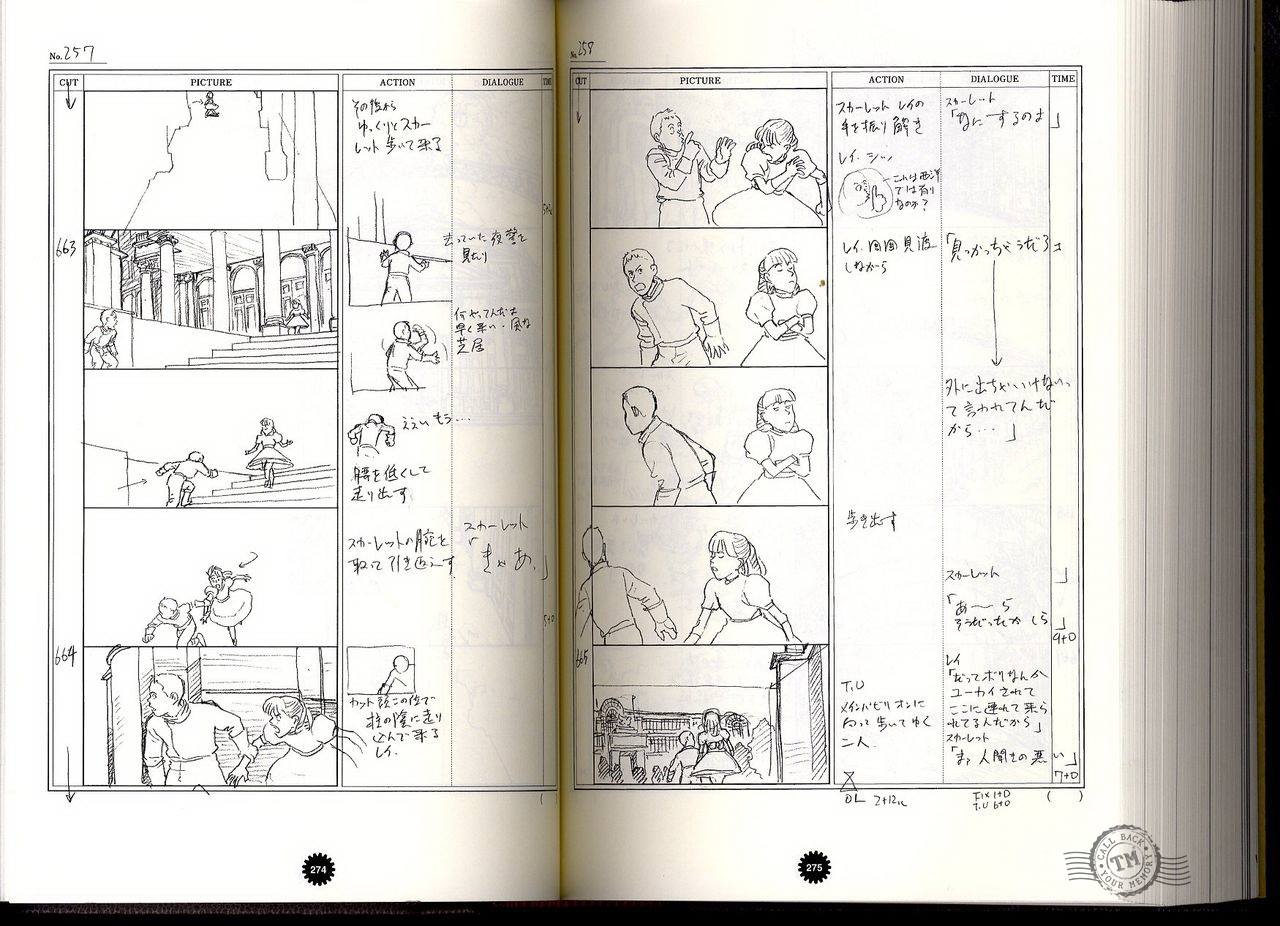 No. 257
CUT PICTURE ACTION DIALOGUE TIME
その陰から
ゆっくりとスカー
レット歩いて来る
663
去っていた夜警を
見たり
何やってんだよ
早く来い・風な
芝居
ええいもう…
腰を低くして
走り出す
スカーレットの腕を
取って引き返えす
スカーレット
「きゃあ、」
5+0
664
カット頭この位で
柱の陰に走り
込んで来る
レイ.
274
No. 258
CUT PICTURE ACTION DIALOGUE TIME
スカーレット レイの
手を振り解き
スカーレット
「なにするのよ」
レイ.シッ
これは西洋
では有り
なのか?
レイ.周囲見渡
しながら
「見つかっちゃうだろ
外に出ちゃいけないっ
て言われてんだ
から…」
歩き出す
スカーレット
「あ〜ら
そうだったかしら」
9+0
665
T.U
メインパビリオンに
向って歩いてゆく
二人.
レイ
「だってボクなんか
ユーカイされて
ここに連れて来ら
れてる人だから」
スカーレット
「まァ人聞きの悪い」
7+0
OL 2+12
FIX 1+0
T.U 6+0
( )
275
CALL BACK
TM
YOUR MEMORY